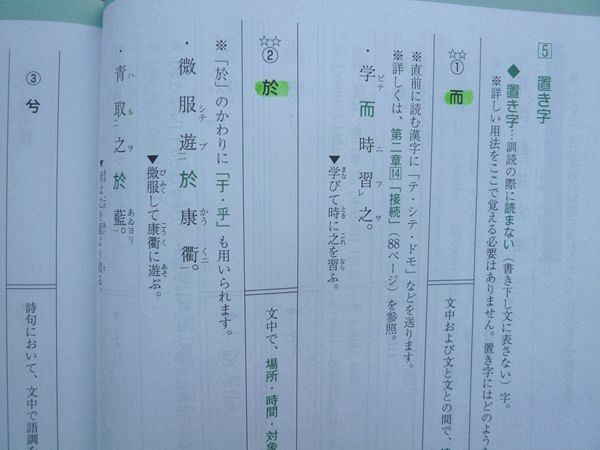 5 置き字
◆置き字…訓読の際に読まない(書き下し文に表さない)字。
※詳しい用法をここで覚える必要はありません。置き字にはどのよう
☆☆
① 而
文中および文と文との間で、
※直前に読む漢字に「テ・シテ・ドモ」などを送ります。
※詳しくは、第二章14「接続」(88ページ)を参照。
・学ビテ而時ニ習フ之ヲ。
▼学びて時に之を習ふ。
まな とき これ なら
☆☆
② 於
文中で、場所・時間・対象
※「於」のかわりに「于・乎」も用いられます。
・微服シテ遊ブ二於康衢ニ一。
かう く
▼微服して康衢に遊ぶ。
びふく こうく あそ
・青ハ取ルヲ二之ヲ於藍ヨリ一。
あゐ
③ 兮
詩句において、文中で語調を